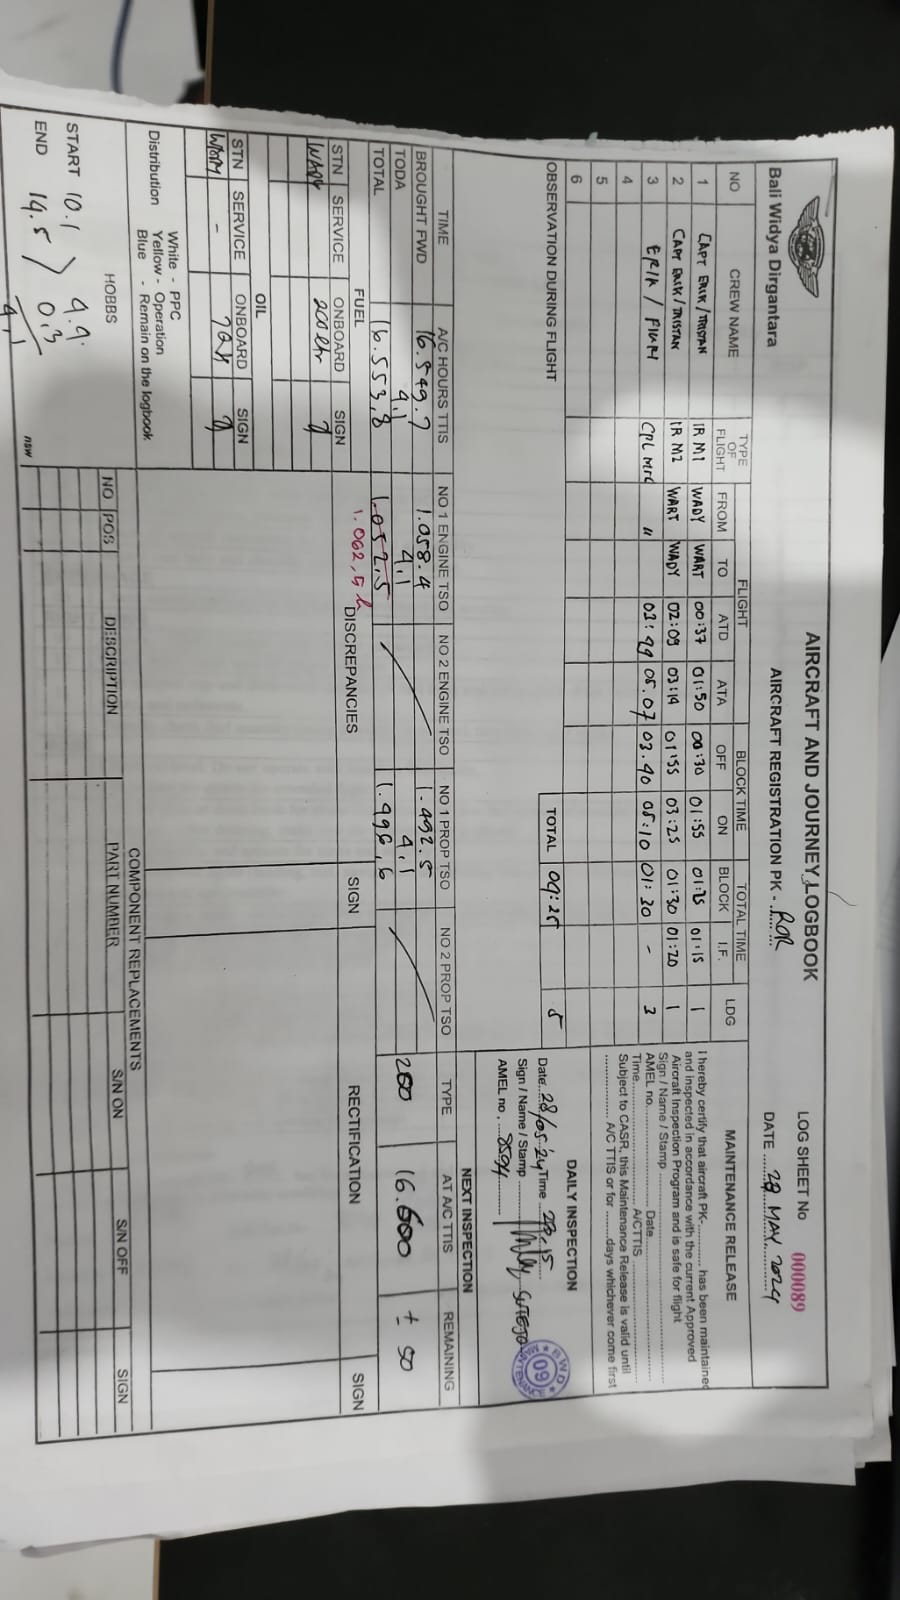 Bali Widya Dirgantara
AIRCRAFT AND JOURNEY LOGBOOK
AIRCRAFT REGISTRATION PK - ROR
LOG SHEET No 000089
DATE 28 MAY 2024
NO CREW NAME TYPE OF FLIGHT FLIGHT BLOCK TIME TOTAL TIME LDG
FROM TO ATD ATA OFF ON BLOCK I.F.
1 CAPT ERIK / TRISTAN IR M1 WADY WART 00:37 01:50 00:30 01:55 01:25 01:15 1
2 CAPT ERIK / TRISTAN IR M2 WART WADY 02:09 03:14 01:55 03:25 01:30 01:20 1
3 ERIK / CPL " 05.07 03.40 05:10 01:30 - 3
4
5
6
OBSERVATION DURING FLIGHT
TOTAL 5
MAINTENANCE RELEASE
I hereby certify that aircraft PK-........... has been maintained
and inspected in accordance with the current Approved
Aircraft Inspection Program and is safe for flight
Sign / Name / Stamp
AMEL no. Date
Time A/CTTIS
Subject to CASR, this Maintenance Release is valid until
A/C TTIS or for ........days whichever come first
DAILY INSPECTION
Date 28/05'24 Time
Sign / Name / Stamp
AMEL no.
BWD 09 MAINTENANCE
TIME A/C HOURS TTIS NO 1 ENGINE TSO NO 2 ENGINE TSO NO 1 PROP TSO NO 2 PROP TSO
BROUGHT FWD 16.549.7 1.058.4 1.492.5
TODA 4.1 4.1 4.1
TOTAL 16.553,8 1.496,6
1.062,5 h
NEXT INSPECTION
TYPE AT A/C TTIS REMAINING
200 16.600 ± 50
FUEL
STN SERVICE ONBOARD SIGN
WADY 200 ltr
OIL
STN SERVICE ONBOARD SIGN
WADY -
DISCREPANCIES SIGN RECTIFICATION SIGN
Distribution White - PPC
Yellow - Operation
Blue - Remain on the logbook
COMPONENT REPLACEMENTS
NO POS DESCRIPTION PART NUMBER S/N ON S/N OFF SIGN
HOBBS
START 10.1
END 14.5
0.3
4.1
nsw